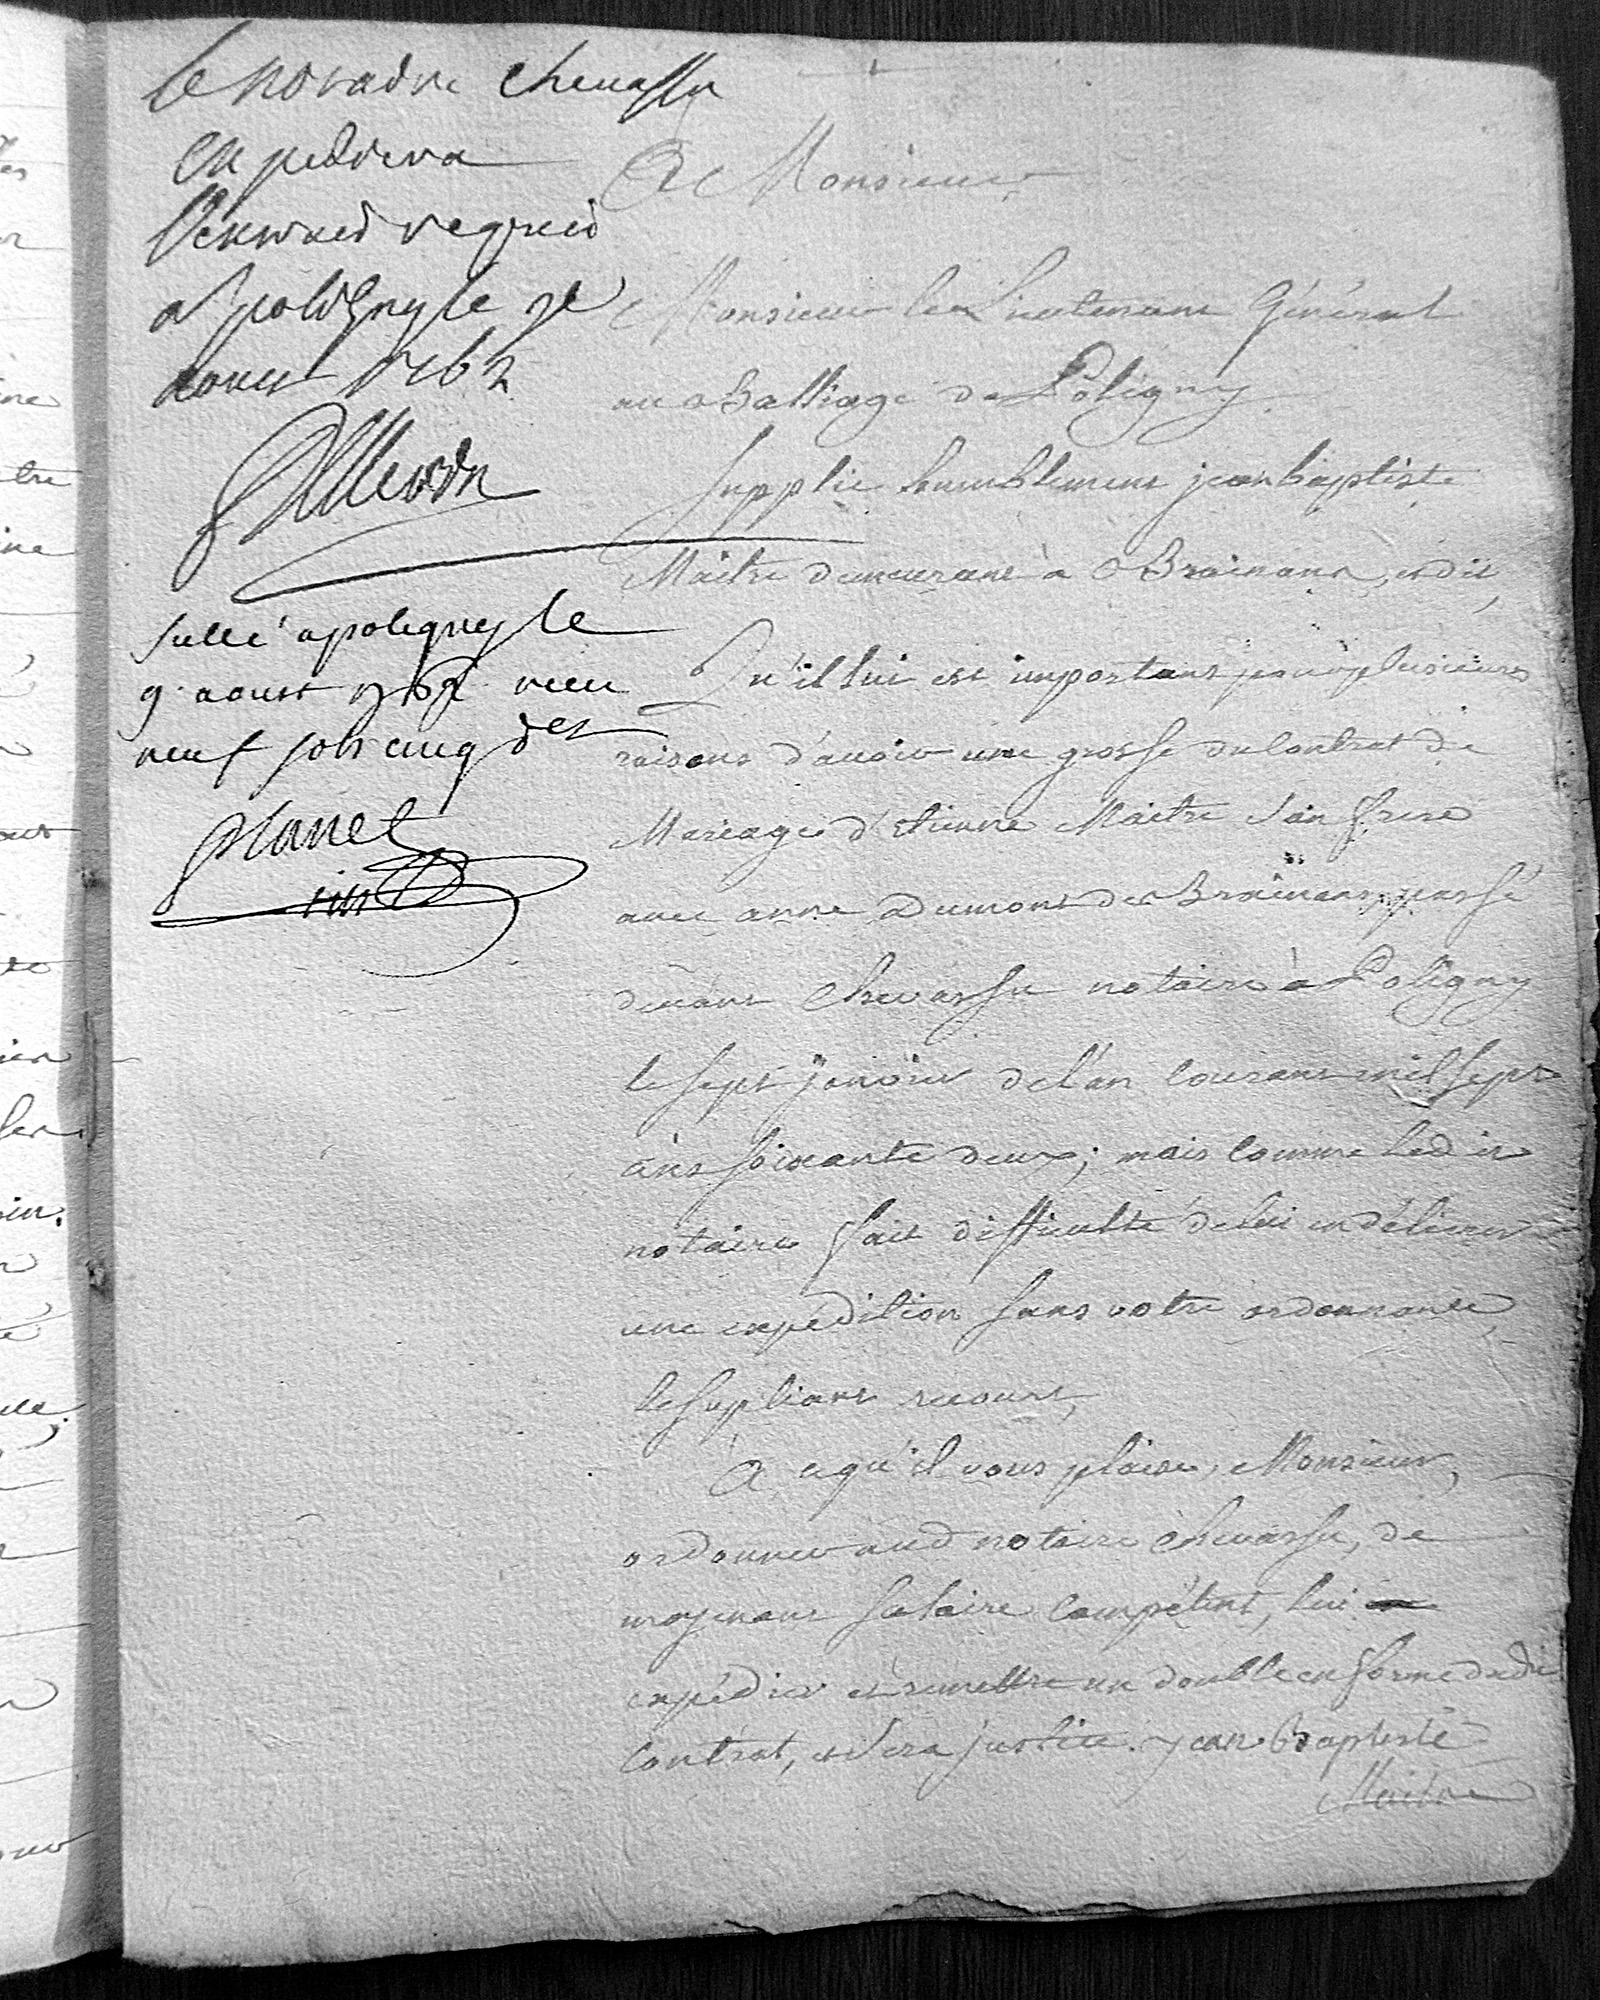 le notaire Chevassu
expediera
l'extrait requis
a poligny le 9e
aoust 1762
Scellé a poligny le
9. aoust 1762 reçu
neuf sols cinq der
planet
A Monsieur
Monsieur le Lieutenant Général
au Balliage de Poligny
Supplie humblement jean baptiste
Maitre demeurant à Brainans, et dit,
Qu'il lui est important pour plusieurs
raisons d'avoir une grosse du Contrat de
Mariage d'etienne Maitre son frere
avec anne Dumont de Brainans, passé
devant Chevassu notaire à Poligny
le sept janvier de l'an courant mil sept
cens soixante deux; mais comme ledit
notaire fait difficulté de lui en délivrer
une expédition sans votre ordonnance,
le supliant recourt,
A ce qu'il vous plaise, Monsieur,
ordonner aud notaire Chevassu, de
moyenant salaire compétent, lui
expédier et remettre un double en forme dudit
Contrat, et sera justice. jean Baptiste
Maitre